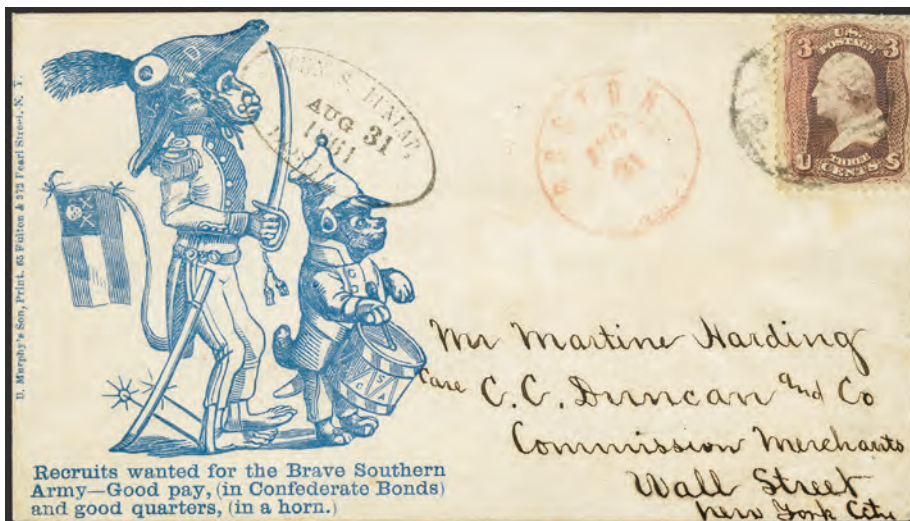 D. Murphy's Son, Print. 65 Fulton & 372 Pearl Street. N. Y.
D
AUG 31
1861
BOSTON
U.S.
3 POSTAGE 3
U CENTS S
C S A
Recruits wanted for the Brave Southern
Army—Good pay, (in Confederate Bonds)
and good quarters, (in a horn.)
Mr Martine Harding
Care C. C. Duncan and Co
Commission Merchants
Wall Street
New York City